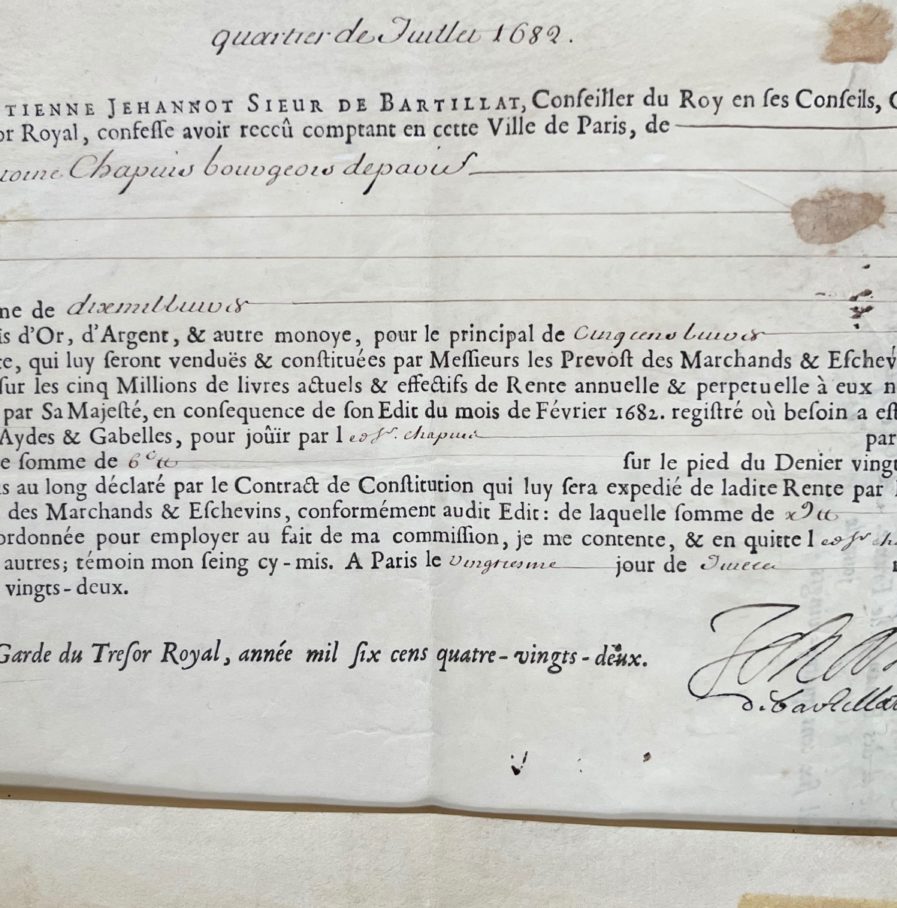 quartier de Juillet 1682.
TIENNE JEHANNOT SIEUR DE BARTILLAT, Conſeiller du Roy en ſes Conſeils,
or Royal, confeſſe avoir reccû comptant en cette Ville de Paris, de
toine Chapuis bourgeois de paris
ne de dix mil livres
is d'Or, d'Argent, & autre monoye, pour le principal de Cinq cens livres
te, qui luy ſeront venduës & conſtituées par Meſſieurs les Prevoſt des Marchands & Eſchev
ſur les cinq Millions de livres actuels & effectifs de Rente annuelle & perpetuelle à eux
par Sa Majeſté, en conſequence de ſon Edit du mois de Février 1682. regiſtré où beſoin a eſt
Aydes & Gabelles, pour joûïr par l chapuis par
e ſomme de ſur le pied du Denier vingt
s au long déclaré par le Contract de Conſtitution qui luy ſera expedié de ladite Rente par
des Marchands & Eſchevins, conformément audit Edit: de laquelle ſomme de
ordonnée pour employer au fait de ma commiſſion, je me contente, & en quitte l
autres; témoin mon ſeing cy-mis. A Paris le vingtiesme jour de
vingts-deux.
Garde du Treſor Royal, année mil ſix cens quatre-vingts-deux.
Jehan
de bartillat